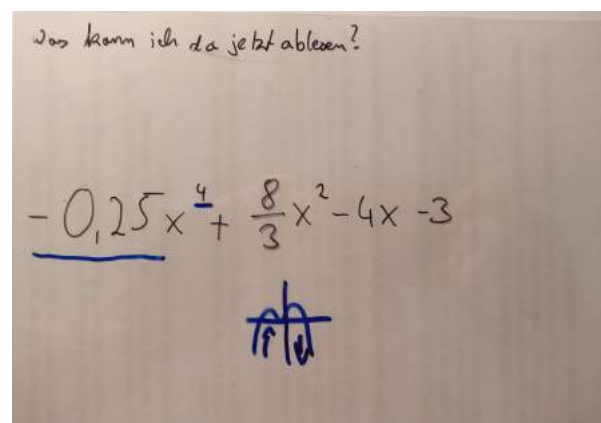 Was kann ich da jetzt ablesen?
-0,25x⁴ + 8/3 x² - 4x - 3